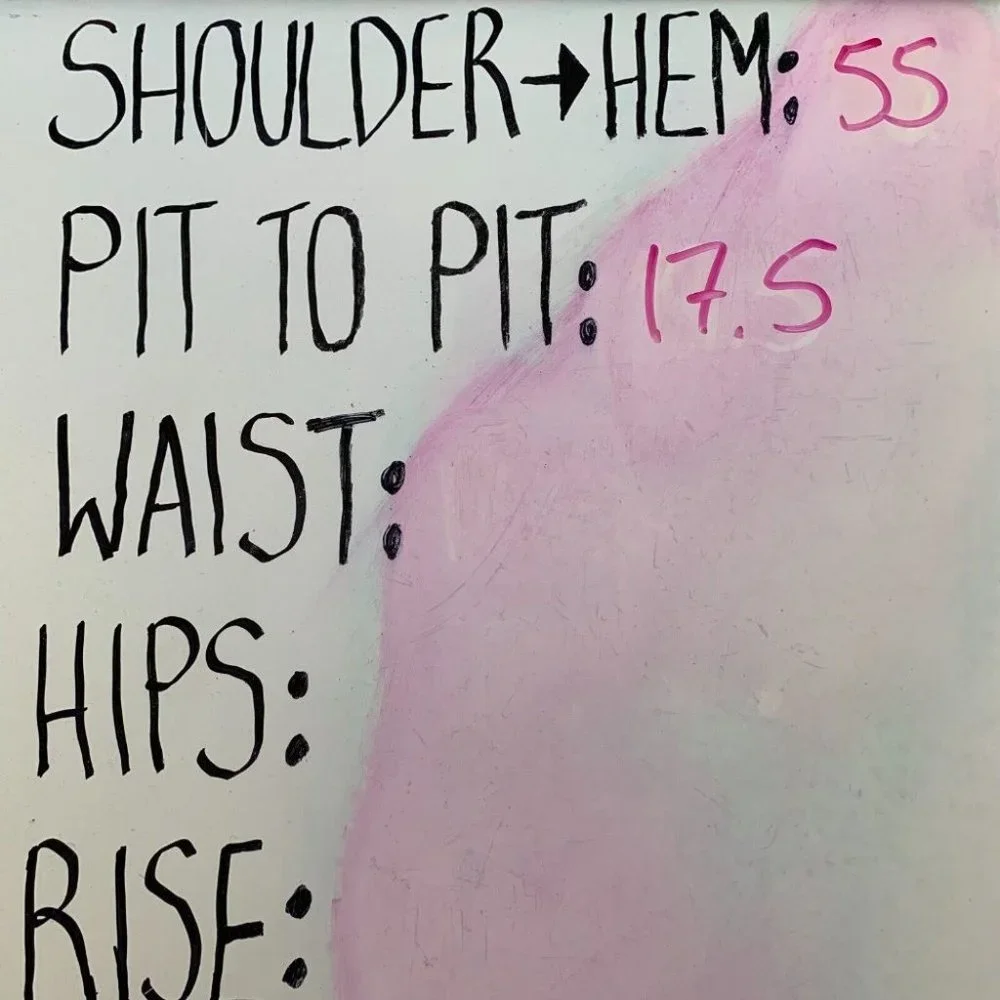 SHOULDER→HEM: 55
PIT TO PIT: 17.5
WAIST:
HIPS:
RISE: